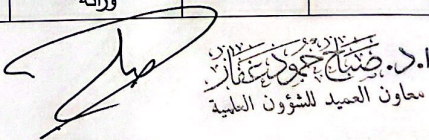 وراثة
ا.د. صباح حمود غفار
معاون العميد للشؤون العلمية